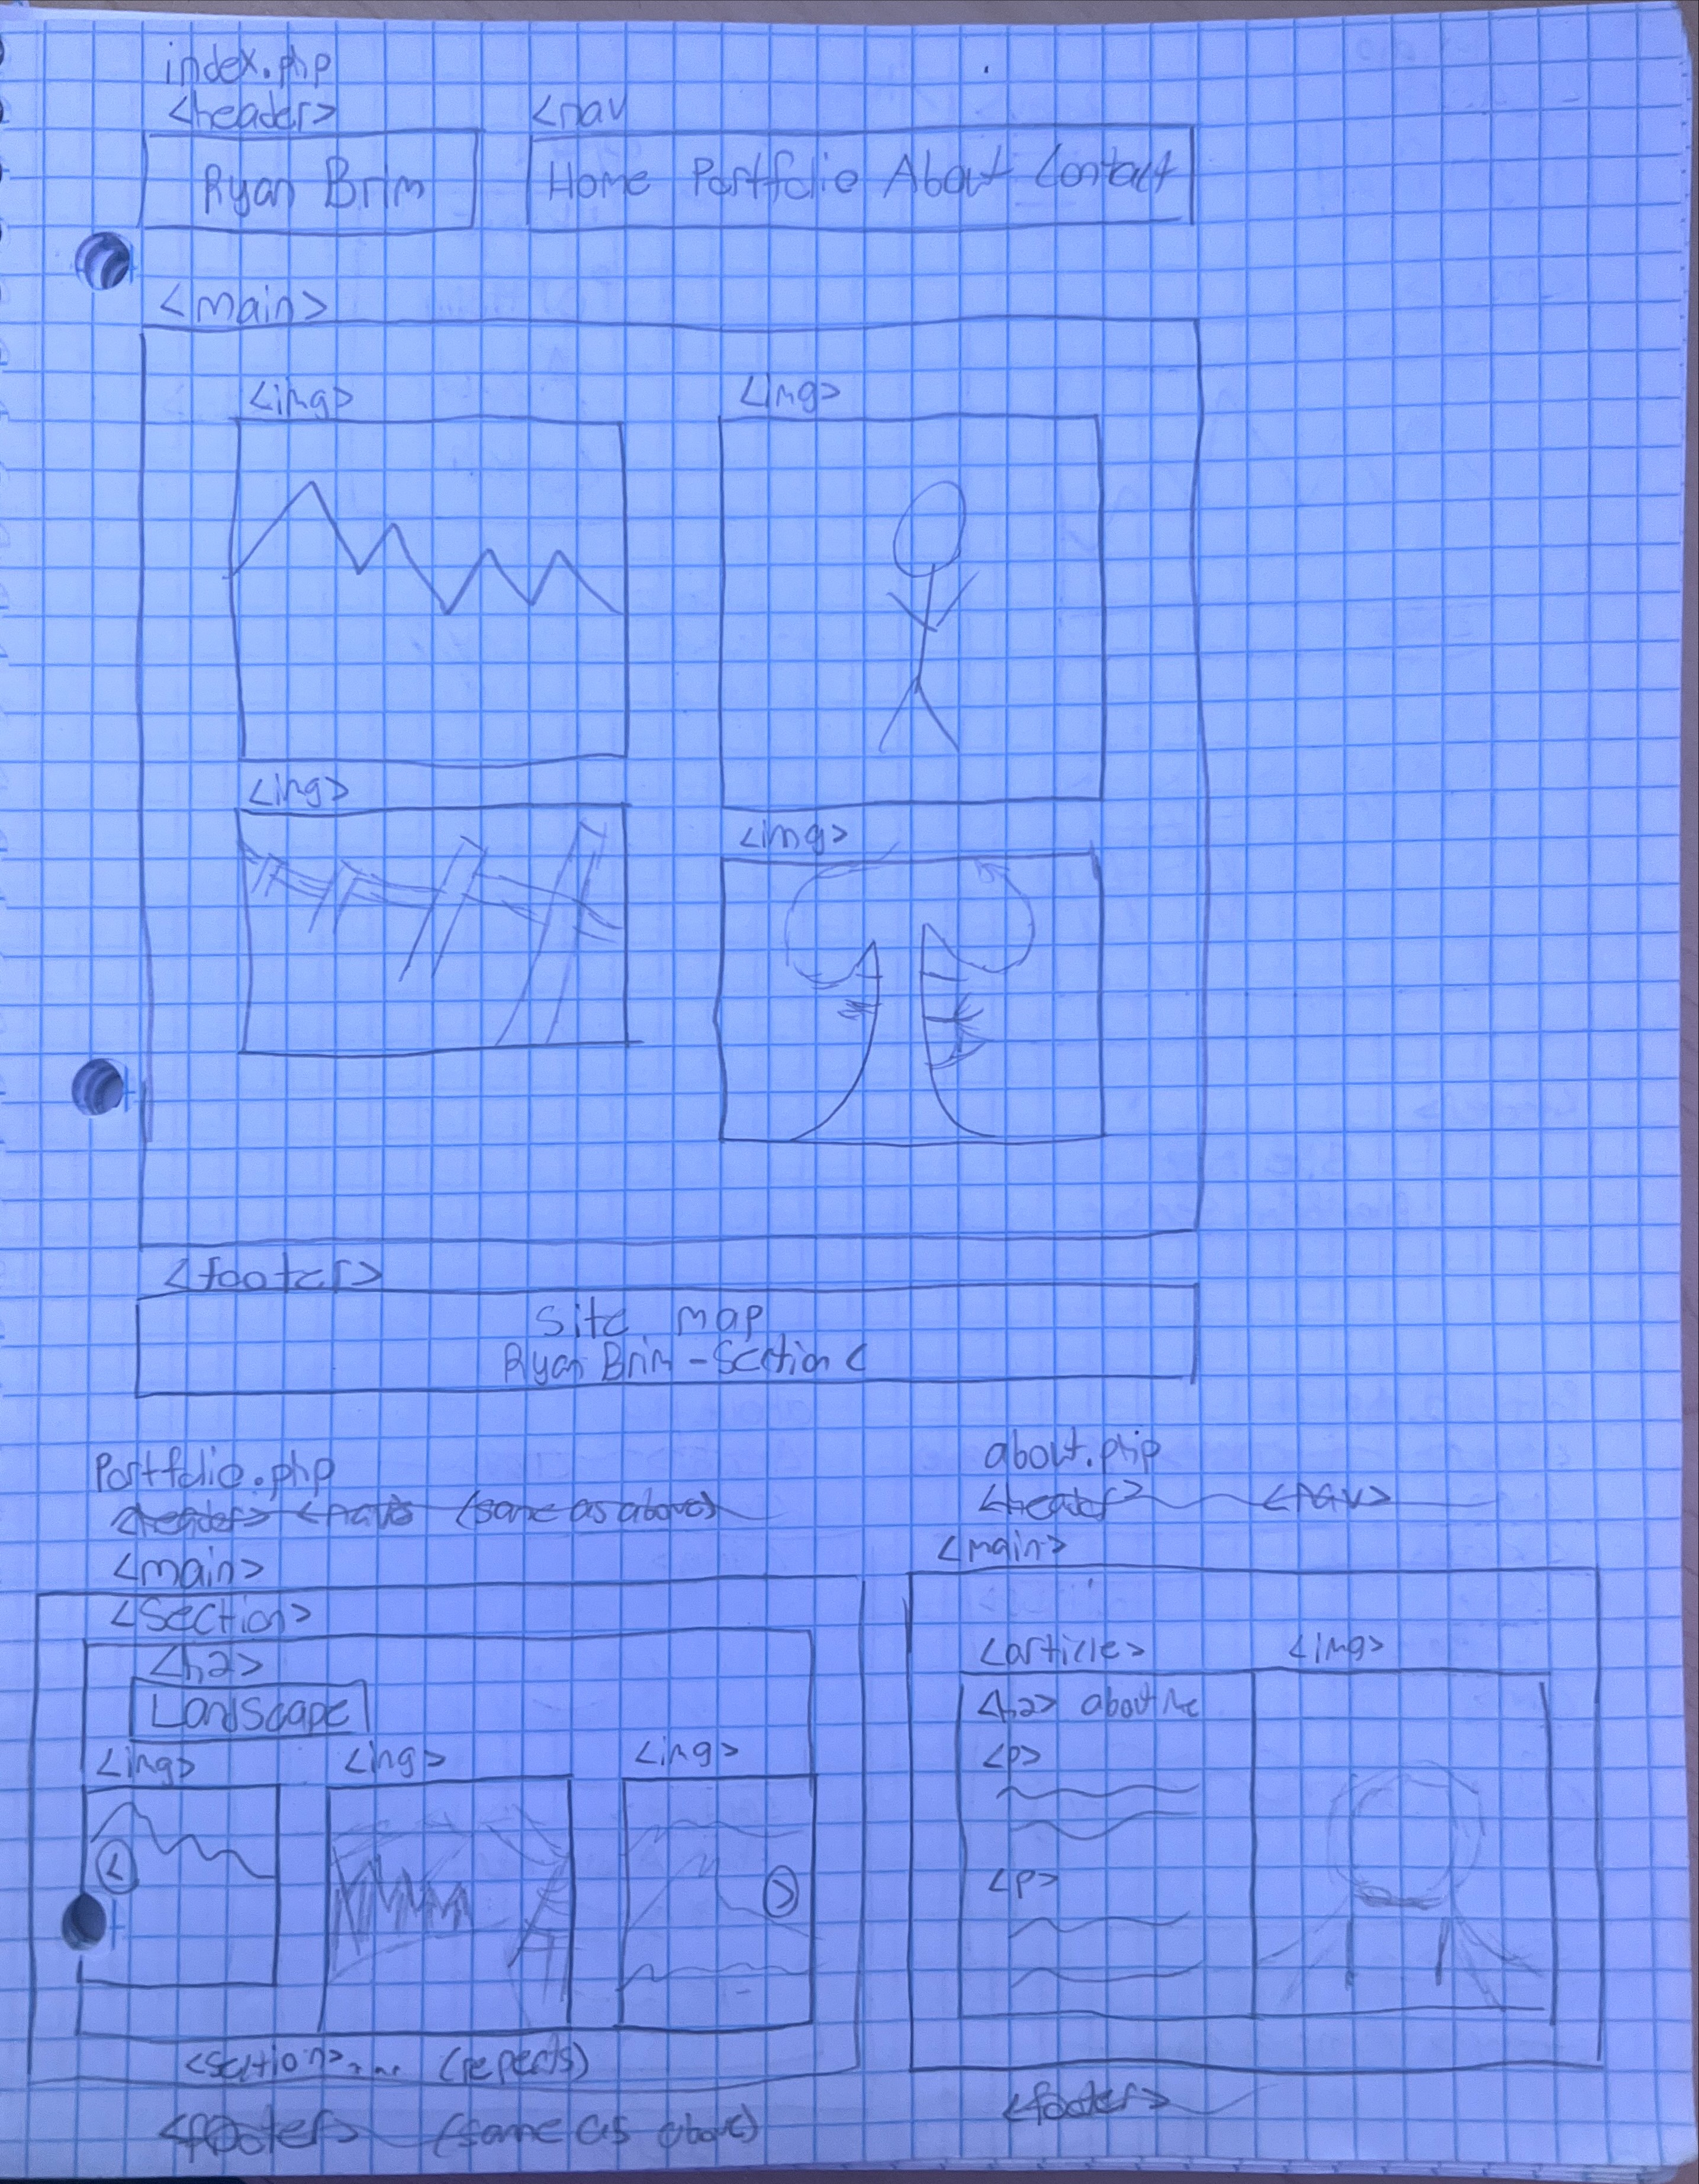 index.php
<header> <nav
Ryan Brim Home Portfolio About Contact
<main>
<img> <img>
<img>
<img>
<footer>
Site map
Ryan Brim - Section C
Portfolio.php
<header> <nav> (same as above)
<main>
<section>
<h2>
Landscape
<img> <img> <img>
<
>
<section>.... (repeats)
<footer> (same as above)
about.php
<header> <nav>
<main>
<article> <img>
<h2> about me
<p>
<p>
<footer>